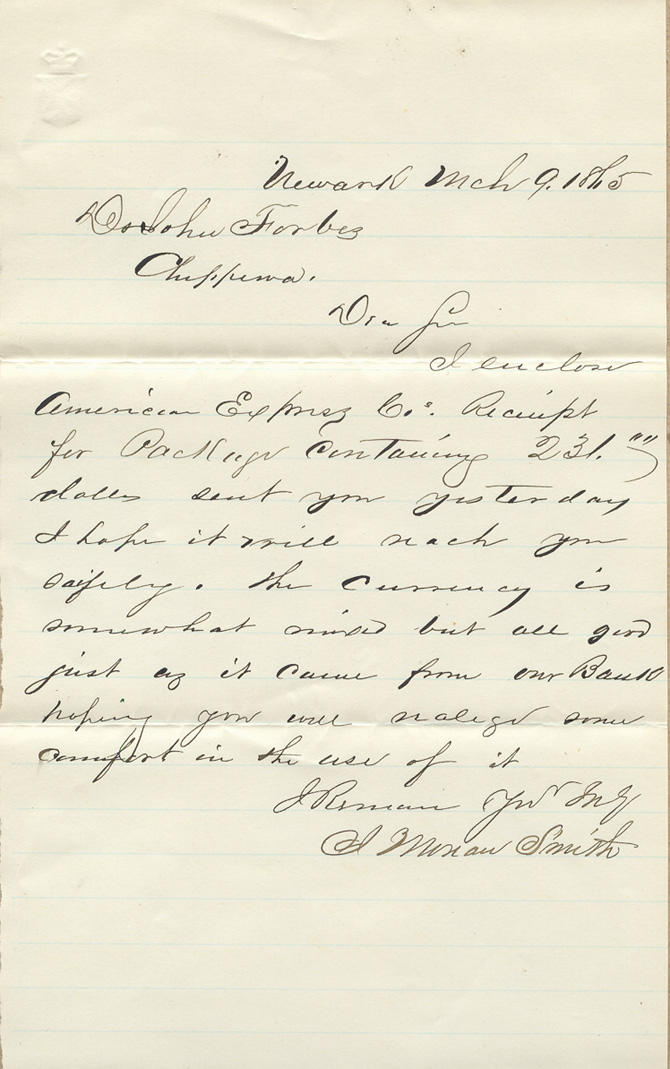 Newark Mch 9. 1865
Dr John Forbes
Chippewa.
Dear Sir
I enclose
American Express Co.s. Receipt
for Package Containing 231. ""
dollars sent you yesterday
I hope it will reach you
safely. the currency is
somewhat mixed but all good
just as it came from our Bank
hoping you will realize some
comfort in the use of it
I Remain Yrs
Smith